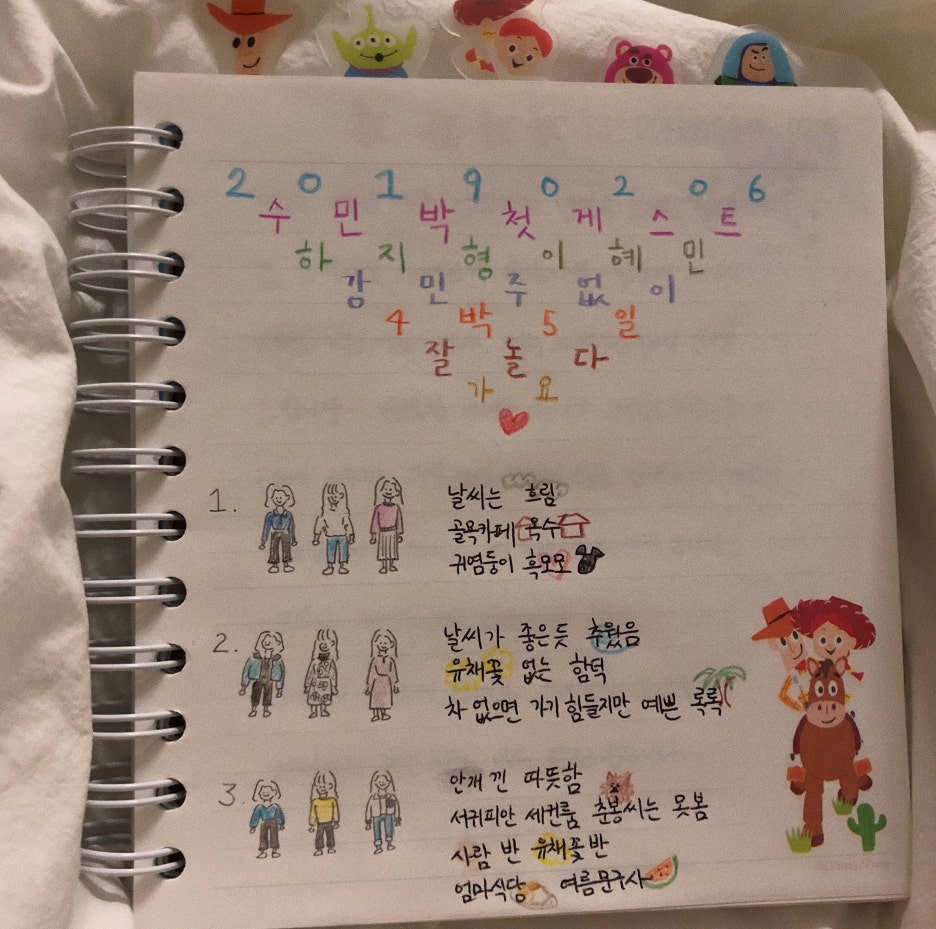 2 0 1 9 0 2 0 6
수 민 박 첫 게 스 트
하 지 형 이 혜 민
강 민 주 없 이
4 박 5 일
잘 놀 다
가 요
1.
날씨는 흐림
골목카페 옥수
귀염둥이 흑모모
2.
날씨가 좋은듯 추웠음
유채꽃 없는 함덕
차 없으면 가기 힘들지만 예쁜 록록
3.
안개 낀 따뜻함
서귀피안 세컨룸 춘봉씨는 못봄
사람 반 유채꽃반
엄마식당 여름문구사